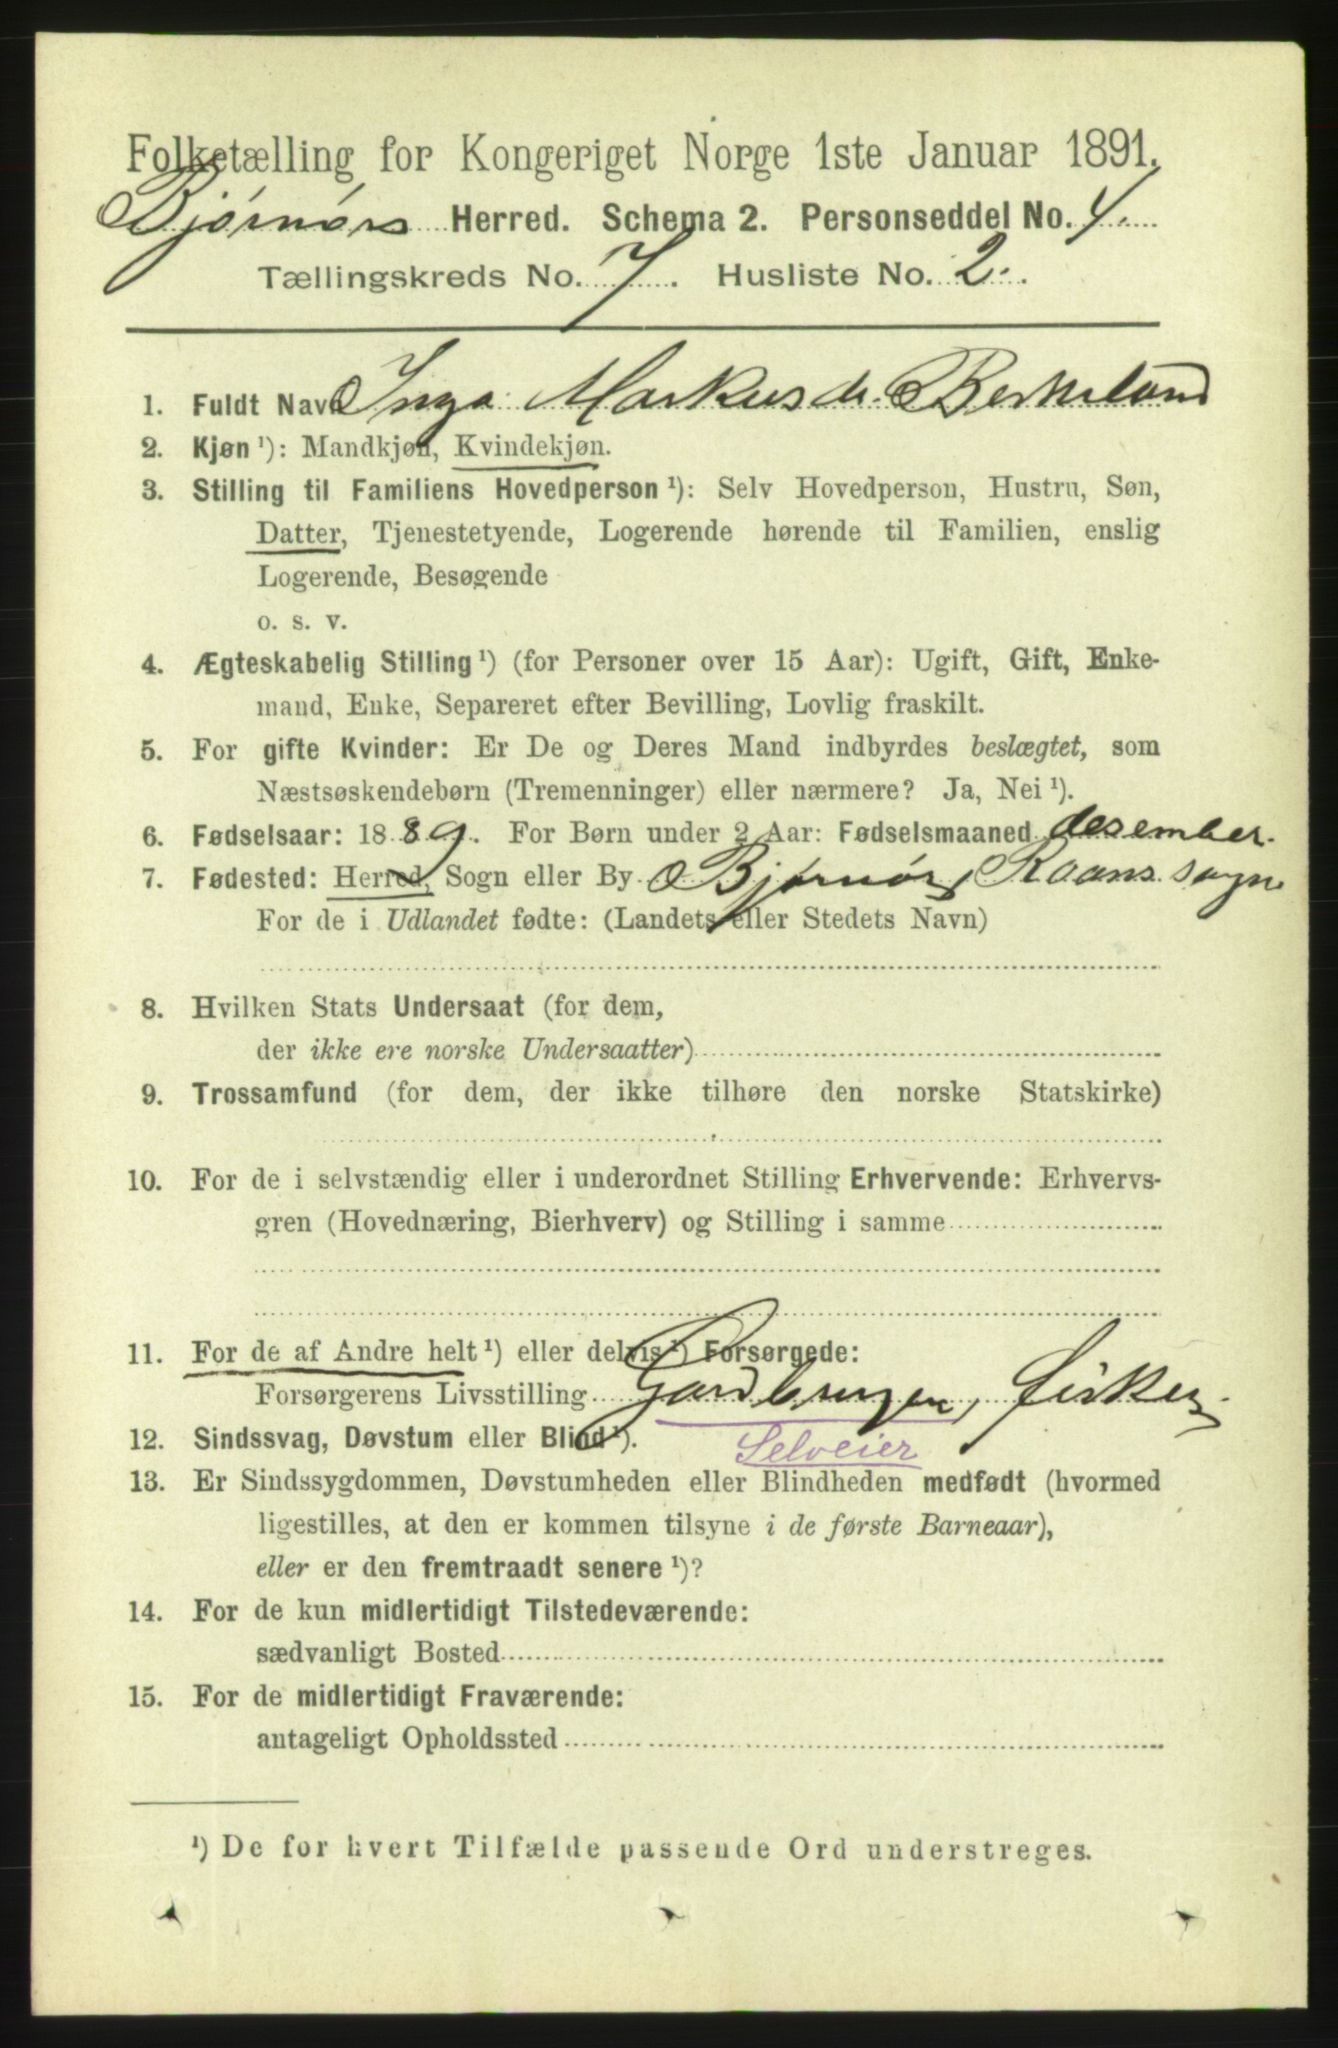 Folketælling for Kongeriget Norge 1ste Januar 1891.
Bjørnørs Herred. Schema 2. Personseddel No. 4.
Tællingskreds No. 7. Husliste No. 2.
1. Fuldt Navn Inga Markusdr. Berkeland
2. Kjøn ¹): Mandkjøn, Kvindekjøn.
3. Stilling til Familiens Hovedperson ¹): Selv Hovedperson, Hustru, Søn,
Datter, Tjenestetyende, Logerende hørende til Familien, enslig
Logerende, Besøgende
o. s. v.
4. Ægteskabelig Stilling ¹) (for Personer over 15 Aar): Ugift, Gift, Enke-
mand, Enke, Separeret efter Bevilling, Lovlig fraskilt.
5. For gifte Kvinder: Er De og Deres Mand indbyrdes beslægtet, som
Næstsøskendebørn (Tremenninger) eller nærmere? Ja, Nei ¹).
6. Fødselsaar: 1889. For Børn under 2 Aar: Fødselsmaaned desember.
7. Fødested: Herred, Sogn eller By Bjørnør, Roans sogn
For de i Udlandet fødte: (Landets eller Stedets Navn)
8. Hvilken Stats Undersaat (for dem,
der ikke ere norske Undersaatter)
9. Trossamfund (for dem, der ikke tilhøre den norske Statskirke)
10. For de i selvstændig eller i underordnet Stilling Erhvervende: Erhvervs-
gren (Hovednæring, Bierhverv) og Stilling i samme
11. For de af Andre helt ¹) eller delvis ¹) Forsørgede:
Forsørgerens Livsstilling Gardbruger, fisker.
12. Sindssvag, Døvstum eller Blind ¹). Selveier
13. Er Sindssygdommen, Døvstumheden eller Blindheden medfødt (hvormed
ligestilles, at den er kommen tilsyne i de første Barneaar),
eller er den fremtraadt senere ¹)?
14. For de kun midlertidigt Tilstedeværende:
sædvanligt Bosted
15. For de midlertidigt Fraværende:
antageligt Opholdssted
¹) De for hvert Tilfælde passende Ord understreges.